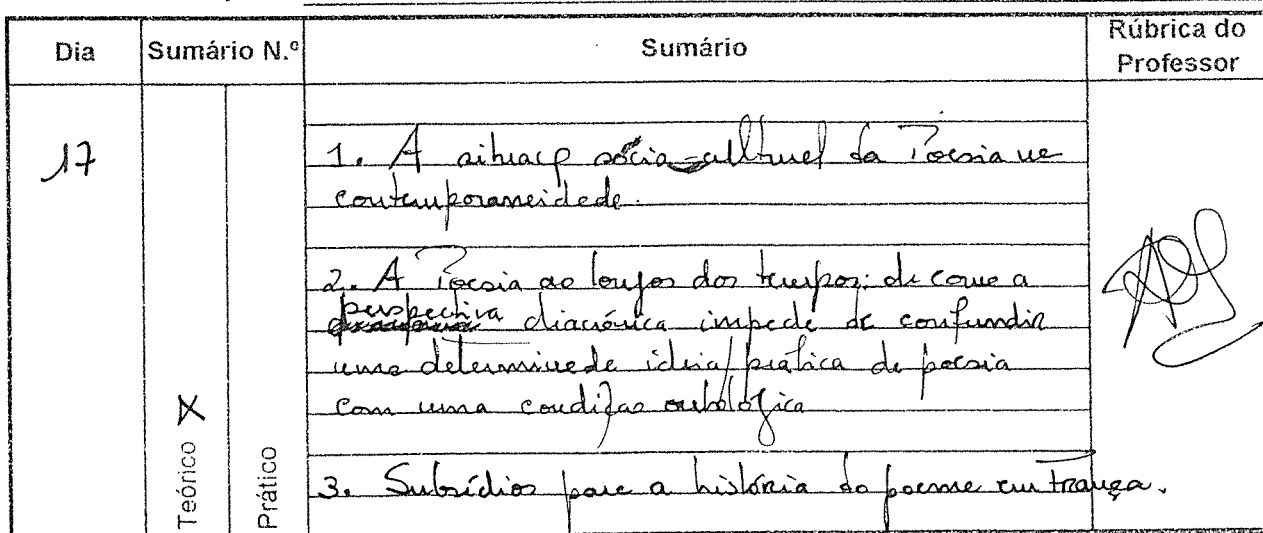 Dia Sumário N.º Sumário Rúbrica do Professor
17
1. A situaçº sócio-cultural da Poesia na
contemporaneidade.
2. A Poesia ao longos dos tempos: de como a
perspectiva diacrónica impede de confundir
uma determinada ideia/prática de poesia
com uma condição ontológica
3. Subsídios para a história do poema em França.
Teórico X
Prático